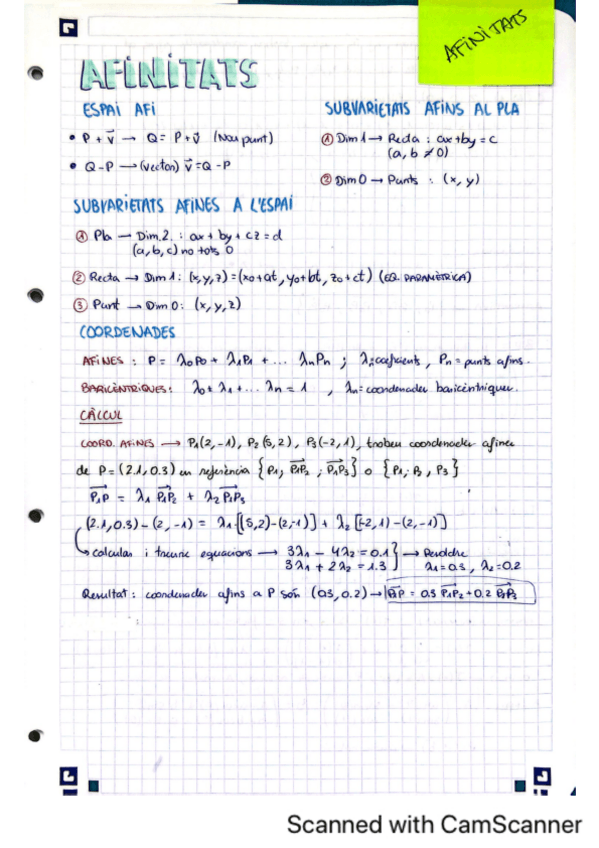 AFINITATS
AFINITATS
ESPAI AFI
• P + v⃗ → Q = P + v⃗ (Nou punt)
• Q - P → (vector) v⃗ = Q - P
SUBVARIETATS AFINS AL PLA
① Dim 1 → Recta : ax + by = c
(a, b ≠ 0)
② Dim 0 → Punts : (x, y)
SUBVARIETATS AFINES A L'ESPAI
① Pla → Dim 2. : ax + by + cz = d
(a, b, c) no tots 0
② Recta → Dim 1 : (x, y, z) = (x0 + at, y0 + bt, z0 + ct) (EQ. PARAMÈTRICA)
③ Punt → Dim 0 : (x, y, z)
COORDENADES
AFINES : P = λ0P0 + λ1P1 + ... λnPn ; λ: coeficients , Pn = punts afins.
BARICÈNTRIQUES : λ0 + λ1 + ... λn = 1 , λn = coordenades baricèntriques.
CÀLCUL
COORD. AFINES → P1(2, -1), P2(5, 2), P3(-2, 1), trobeu coordenades afines
de P = (2.1, 0.3) en referència {P1; P1P2 ; P1P3} o {P1; P2, P3}
P1P = λ1 P1P2 + λ2 P1P3
(2.1, 0.3) - (2, -1) = λ1 [(5,2) - (2,-1)] + λ2 [(-2,1) - (2,-1)]
calcular i treure equacions → 3λ1 - 4λ2 = 0.1 } → Resoldre
3λ1 + 2λ2 = 1.3 λ1 = 0.3 , λ2 = 0.2
Resultat : coordenades afins a P són (0.3, 0.2) → P1P = 0.3 P1P2 + 0.2 P1P3
Scanned with CamScanner